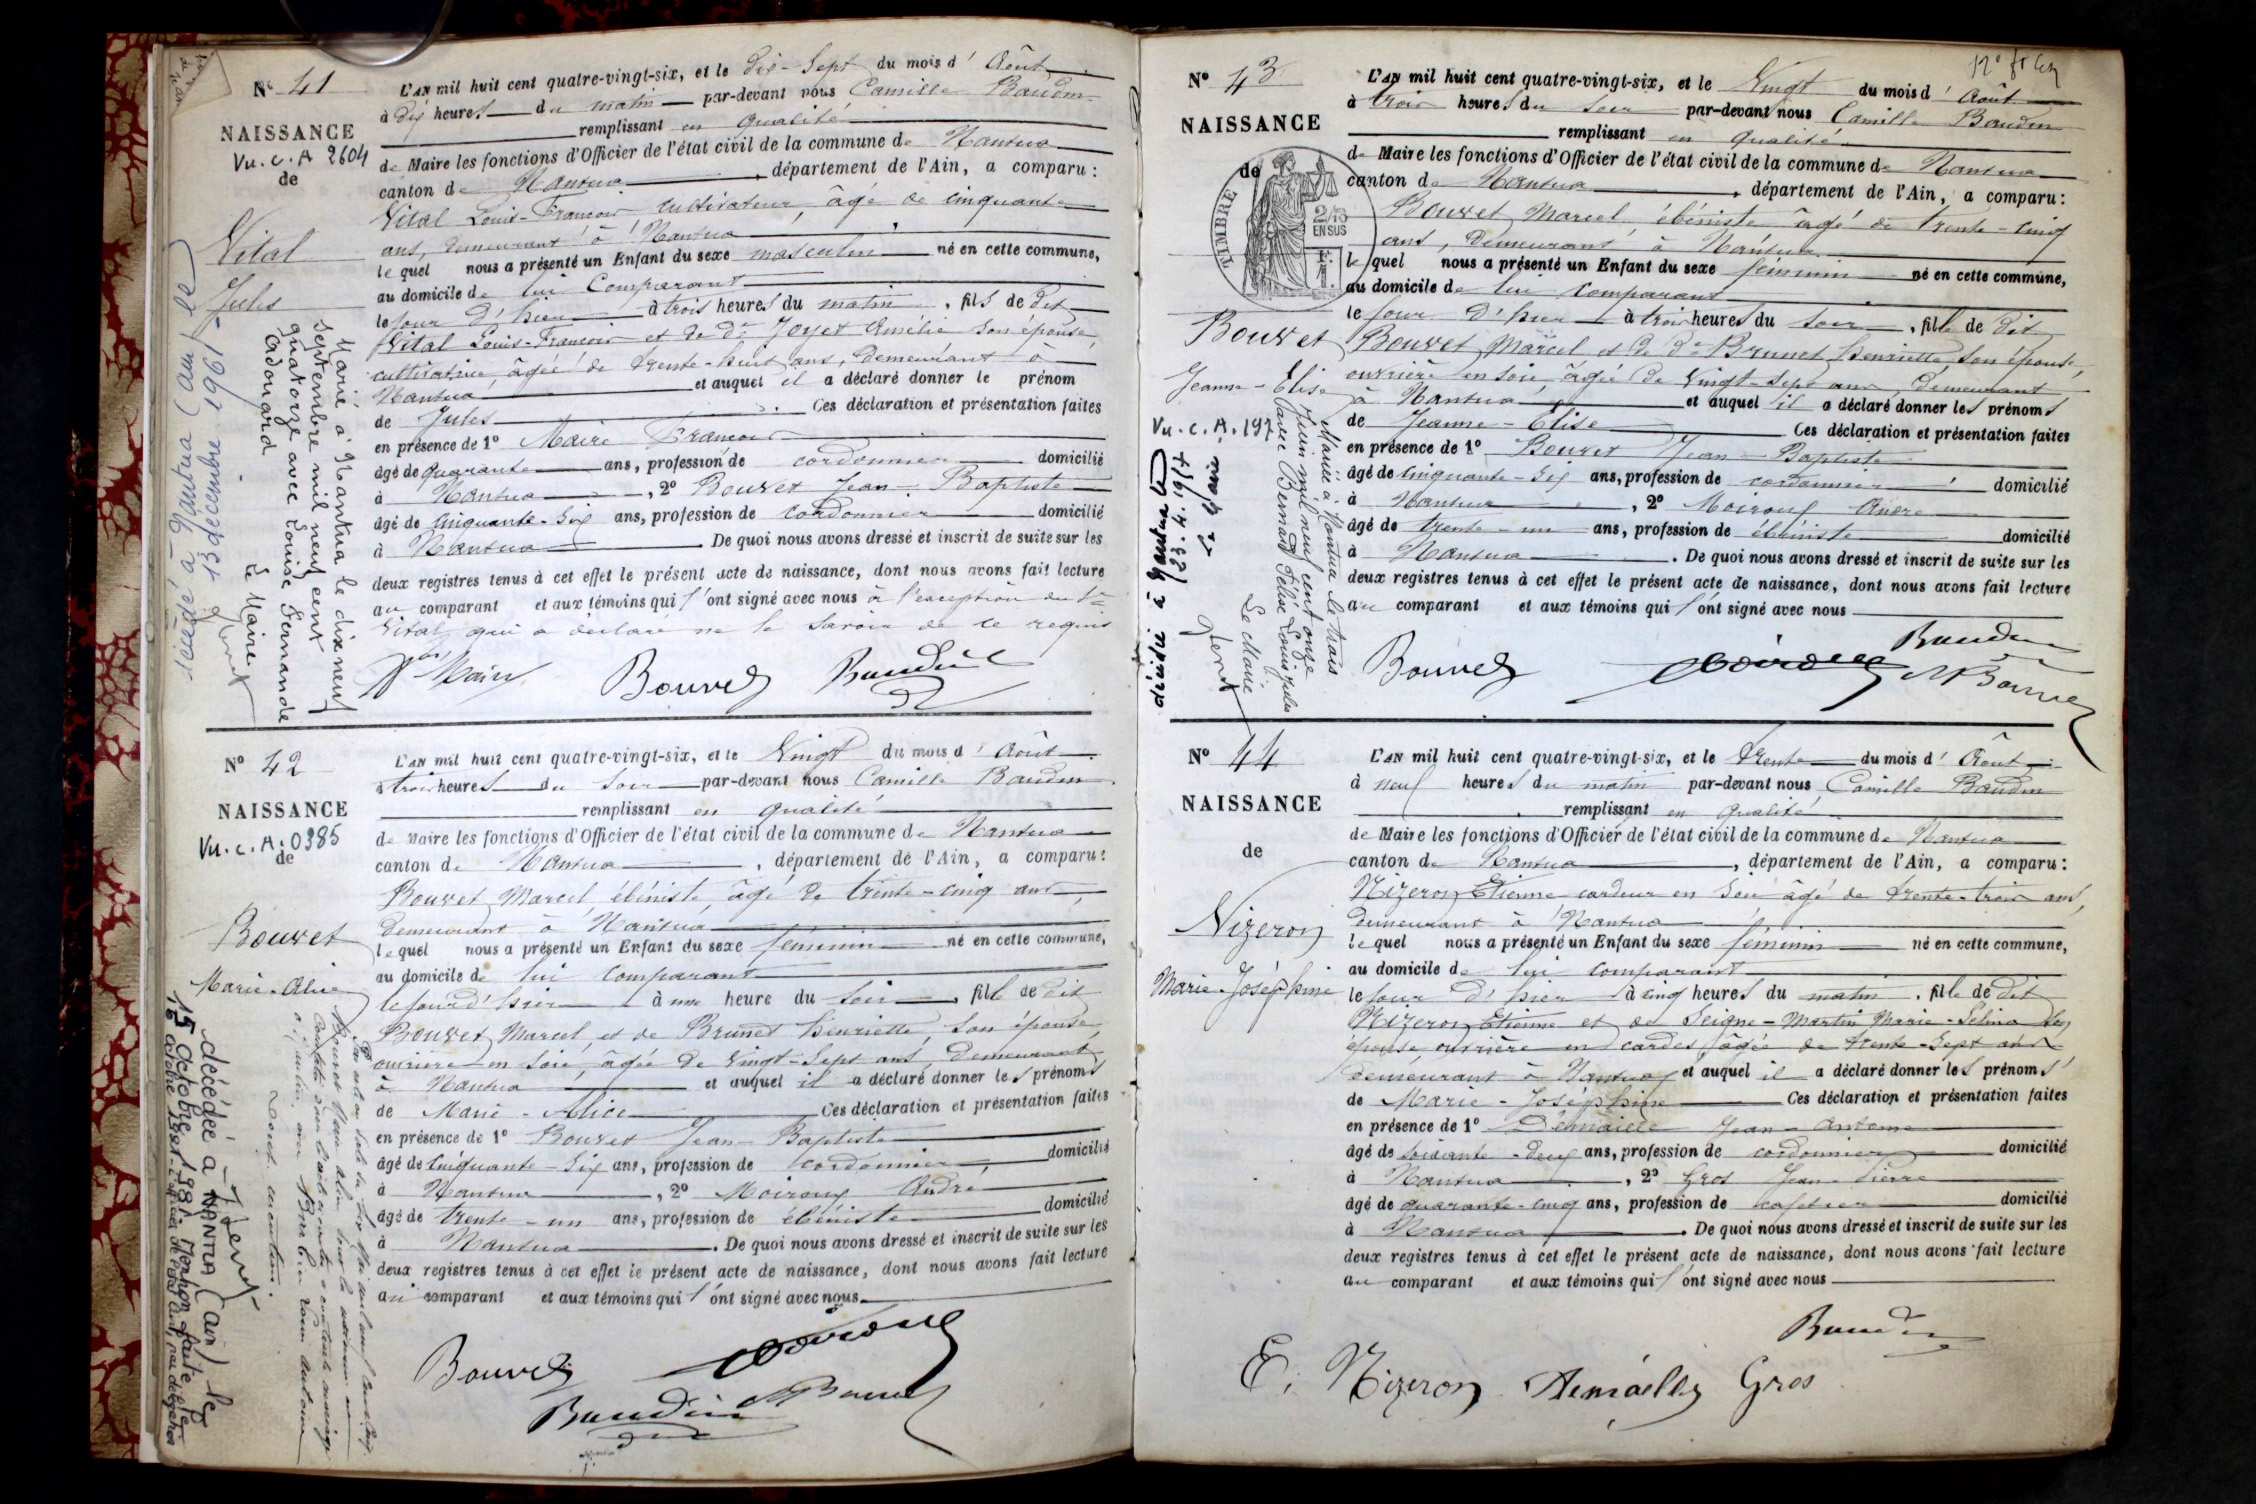 N° 41
NAISSANCE
Vu. c. A 2604
de
Vital
Jules
Marié à Nantua le dix neuf
septembre mil neuf cent
quatorze avec Louise Fernande
Adorard
Le Maire
décédé à Nantua (Ain) le
13 décembre 1961
L'AN mil huit cent quatre-vingt-six, et le dix-sept du mois d'Août
à dix heures du matin par-devant nous Camille Baudin
remplissant en qualité
de Maire les fonctions d'Officier de l'état civil de la commune de Nantua
canton de Nantua, département de l'Ain, a comparu:
Vital Louis-François cultivateur, âgé de cinquante
ans, demeurant à Nantua
lequel nous a présenté un Enfant du sexe masculin né en cette commune,
au domicile de lui Comparant
le jour d'hier à trois heures du matin, fils de dit
Vital Louis-François et de De Joyet Amélie son épouse
cultivatrice, âgée de trente-huit ans, demeurant à
Nantua et auquel il a déclaré donner le prénom
de Jules. Ces déclaration et présentation faites
en présence de 1° Maire François
âgé de quarante ans, profession de cordonnier domicilié
à Nantua, 2° Bouvet Jean-Baptiste
âgé de cinquante-six ans, profession de cordonnier domicilié
à Nantua. De quoi nous avons dressé et inscrit de suite sur les
deux registres tenus à cet effet le présent acte de naissance, dont nous avons fait lecture
au comparant et aux témoins qui l'ont signé avec nous à l'exception du Sr
Vital qui a déclaré ne le savoir de ce requis
Bouvet Baudin
N° 42
NAISSANCE
Vu. c. A. 0385
de
Bouvet
Marie-Alice
décédée à NANTUA (Ain) le
15 octobre 1981. Mention faite le
L'AN mil huit cent quatre-vingt-six, et le Vingt du mois d'Août
à trois heures du soir par-devant nous Camille Baudin
remplissant en qualité
de Maire les fonctions d'Officier de l'état civil de la commune de Nantua
canton de Nantua, département de l'Ain, a comparu:
Bouvet Marcel, ébéniste, âgé de trente-cinq ans,
demeurant à Nantua
lequel nous a présenté un Enfant du sexe féminin né en cette commune,
au domicile de lui comparant
le jour d'hier à une heure du soir, fille de dit
Bouvet Marcel et de Brunet Henriette, son épouse,
ouvrière en soie, âgée de vingt-sept ans, demeurant
à Nantua et auquel il a déclaré donner les prénoms
de Marie-Alice Ces déclaration et présentation faites
en présence de 1° Bouvet Jean-Baptiste
âgé de cinquante-six ans, profession de cordonnier, domicilié
à Nantua, 2° Moiroux André
âgé de trente-un ans, profession de ébéniste domicilié
à Nantua. De quoi nous avons dressé et inscrit de suite sur les
deux registres tenus à cet effet le présent acte de naissance, dont nous avons fait lecture
au comparant et aux témoins qui l'ont signé avec nous
Bouvet Moiroux
Baudin M Bouvet
N° 43
NAISSANCE
de
TIMBRE
2/10
EN SUS
Bouvet
Jeanne-Elise
Vu. c. A. 197
Mariée à Nantua le trois
Juin mil neuf cent onze
avec Bernard Félix Louis Jules
Le Maire
décédée à Nantua le
23.4.1974
L'AN mil huit cent quatre-vingt-six, et le Vingt du mois d'Août
à trois heures du soir par-devant nous Camille Baudin
remplissant en qualité
de Maire les fonctions d'Officier de l'état civil de la commune de Nantua
canton de Nantua, département de l'Ain, a comparu:
Bouvet Marcel, ébéniste âgé de trente-cinq
ans, demeurant à Nantua
lequel nous a présenté un Enfant du sexe féminin né en cette commune,
au domicile de lui comparant
le jour d'hier à trois heures du soir, fille de dit
Bouvet Marcel et de De Brunet Henriette, son épouse,
ouvrière en soie, âgée de vingt-sept ans demeurant
à Nantua et auquel il a déclaré donner les prénoms
de Jeanne-Elise Ces déclaration et présentation faites
en présence de 1° Bouvet Jean-Baptiste
âgé de cinquante-six ans, profession de cordonnier domicilié
à Nantua, 2° Moiroux André
âgé de trente-un ans, profession de ébéniste domicilié
à Nantua. De quoi nous avons dressé et inscrit de suite sur les
deux registres tenus à cet effet le présent acte de naissance, dont nous avons fait lecture
au comparant et aux témoins qui l'ont signé avec nous
Baudin
Bouvet Moiroux M Bouvet
N° 44
NAISSANCE
de
Nizeron
Marie-Joséphine
L'AN mil huit cent quatre-vingt-six, et le trente du mois d'Août
à neuf heures du matin par-devant nous Camille Baudin
remplissant en qualité
de Maire les fonctions d'Officier de l'état civil de la commune de Nantua
canton de Nantua, département de l'Ain, a comparu:
Nizeron Etienne cardeur en soie âgé de trente-trois ans,
demeurant à Nantua
lequel nous a présenté un Enfant du sexe féminin né en cette commune,
au domicile de lui comparant
le jour d'hier à cinq heures du matin, fille de dit
Nizeron Etienne et de Seigne-Martin Marie-Selina son
épouse ouvrière en cardes, âgée de trente-sept ans
demeurant à Nantua et auquel il a déclaré donner les prénoms
de Marie-Joséphine Ces déclaration et présentation faites
en présence de 1° Jean-Antoine
âgé de soixante-deux ans, profession de cordonnier domicilié
à Nantua, 2° Gros Jean-Pierre
âgé de quarante-cinq ans, profession de cafetier domicilié
à Nantua. De quoi nous avons dressé et inscrit de suite sur les
deux registres tenus à cet effet le présent acte de naissance, dont nous avons fait lecture
au comparant et aux témoins qui l'ont signé avec nous
Baudin
E. Nizeron Gros